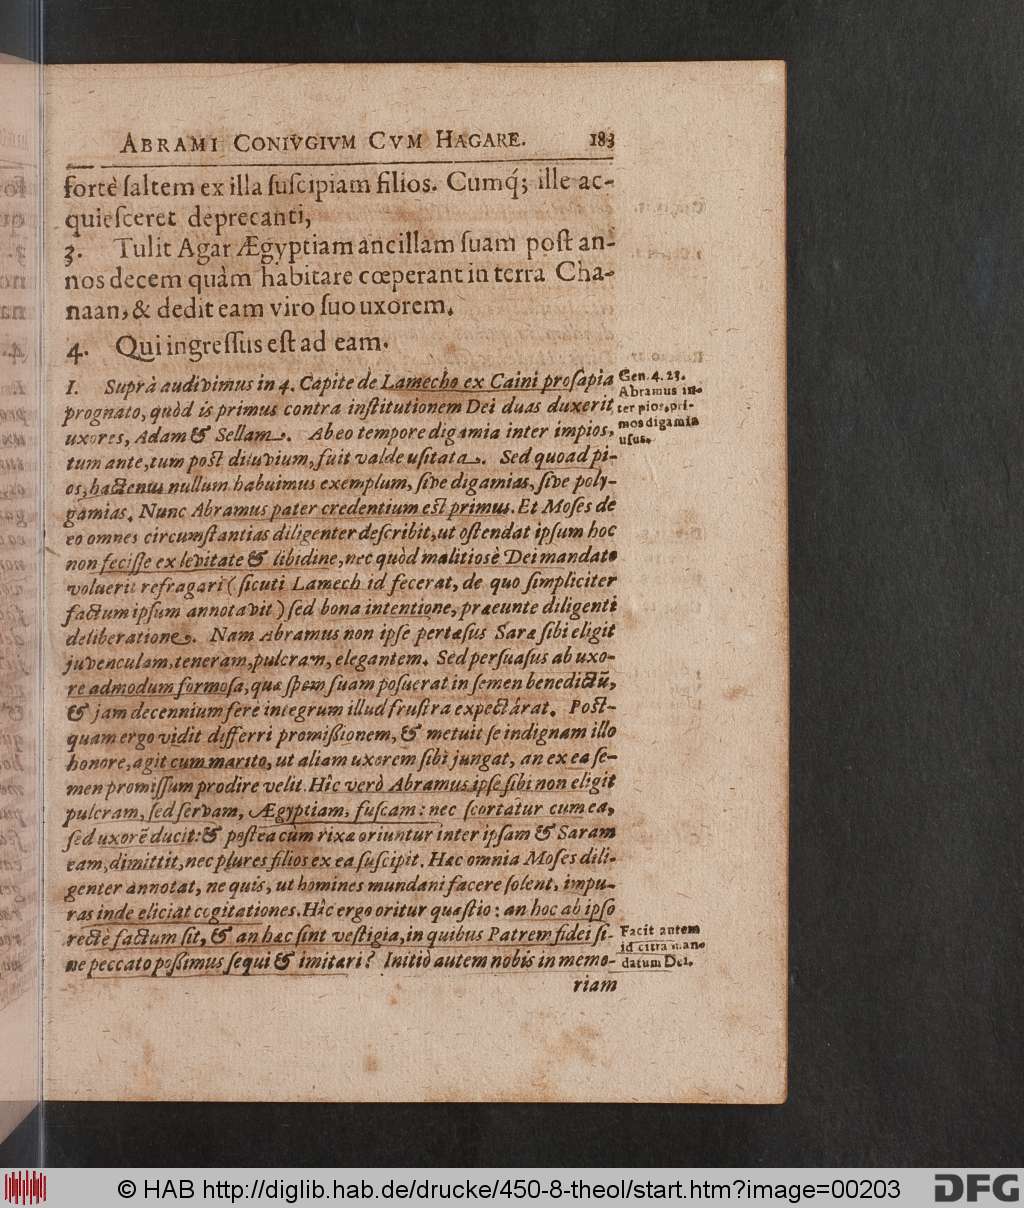 ABRAMI CONIVGIVM CVM HAGARE. 183
fortè ſaltem ex illa ſuſcipiam filios. Cumq́; ille ac-
quieſceret deprecanti,
3. Tulit Agar Ægyptiam ancillam ſuam poſt an-
nos decem quàm habitare cœperant in terra Cha-
naan, & dedit eam viro ſuo uxorem.
4. Qui ingreſſus eſt ad eam.
I. Suprà audivimus in 4. Capite de Lamecho ex Caini proſapia
prognato, quòd is primus contra inſtitutionem Dei duas duxerit
uxores, Adam & Sellam. Ab eo tempore digamia inter impios,
tum ante, tum poſt diluvium, fuit valde uſitata. Sed quoad pi-
os, hactenus nullum habuimus exemplum, ſive digamias, ſive poly-
gamias. Nunc Abramus pater credentium eſt primus. Et Moſes de
eo omnes circumſtantias diligenter deſcribit, ut oſtendat ipſum hoc
non feciſſe ex levitate & libidine, nec quòd malitiosè Dei mandato
voluerit refragari (ſicuti Lamech id fecerat, de quo ſimpliciter
factum ipſum annotavit) ſed bona intentione, præeunte diligenti
deliberatione. Nam Abramus non ipſe pertæſus Saræ ſibi eligit
juvenculam, teneram, pulcram, elegantem. Sed perſuaſus ab uxo-
re admodum formoſa, quæ ſpem ſuam poſuerat in ſemen benedictũ,
& jam decennium fere integrum illud fruſtra expectârat. Poſt-
quam ergo vidit differri promiſſionem, & metuit ſe indignam illo
honore, agit cum marito, ut aliam uxorem ſibi jungat, an ex ea ſe-
men promiſſum prodire velit. Hîc verò Abramus ipſe ſibi non eligit
pulcram, ſed ſervam, Ægyptiam, fuſcam: nec ſcortatur cum ea,
ſed uxorẽ ducit: & poſtea cùm rixæ oriuntur inter ipſam & Saram
eam, dimittit, nec plures filios ex ea ſuſcipit. Hæc omnia Moſes dili-
genter annotat, ne quis, ut homines mundani facere ſolent, impu-
ras inde eliciat cogitationes. Hîc ergo oritur quæſtio: an hoc ab ipſo
rectè factum ſit, & an hæc ſint veſtigia, in quibus Patrem fidei ſi-
ne peccato poſſimus ſequi & imitari? Initiò autem nobis in memo-
riam
Gen. 4. 23.
Abramus in-
ter pios, pri-
mos digamia
uſus.
Facit autem
id citra man-
datum Dei.
© HAB http://diglib.hab.de/drucke/450-8-theol/start.htm?image=00203
DFG